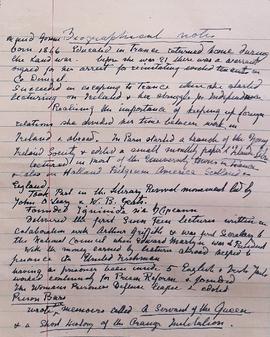 Maud Gonne Biographical notes
born 1866 Educated in France returned home during
the Land war. When she was 21 there was a warrant
signed for her arrest for reinstating evicted tenants in
Co Donegal.
Succeeded in escaping to France where she started
lecturing on Ireland & her struggle for Independence
Realising the importance of keeping up foreign
relations she divided her time between work in
Ireland & abroad. In Paris started a branch of the Young
Ireland Society & edited a small monthly paper
lectured in most of the University towns in France
& also in Holland Belgium America Scotland &
England
Took Part in the Literary Revival movement led by
John O'Leary & W. B. Yeats.
Founded Eginnida
Delivered the first Sinn Fein lectures written in
Colaboration with Arthur Griffith & was first Secretary to
the National Council when Edward Martyn was President
With the money earned by lectures abroad helped to
finance the United Irishman
having as prisoner been inside 5 English & Irish Jails
worked continually for Prison Reform & founded
The Womans Prisoners Defence League & edited
Prison Bars
wrote, memoirs called A Servant of the Queen
& a Short History of the Orange Institution.